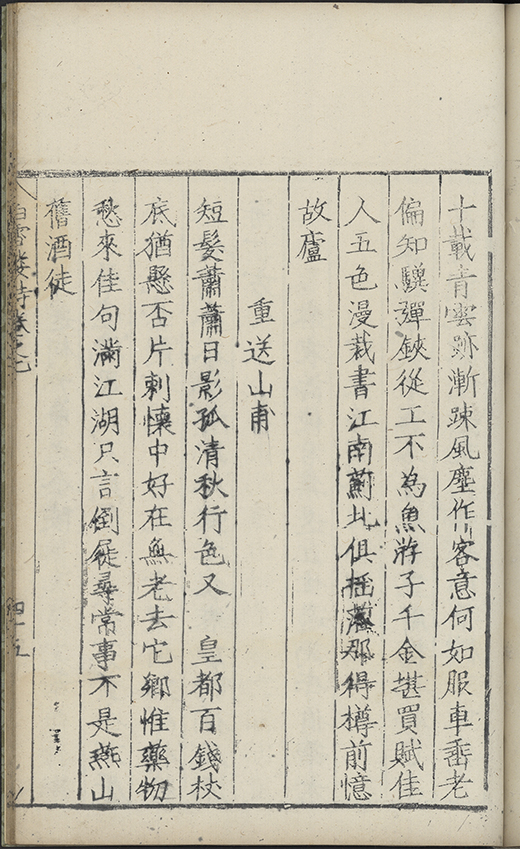 十載青雲跡漸踈風塵作客意何如服車垂老
偏知驥彈鋏從工不為魚游子千金堪買賦佳
人五色漫裁書江南薊北俱搖落那得樽前憶
故廬
重送山甫
短髮蕭蕭日影孤清秋行色又　皇都百錢杖
底猶懸否片刺懷中好在無老去它鄉惟藥物
愁來佳句滿江湖只言倒屣尋常事不是燕山
舊酒徒
白雲樓詩卷之七
四十五